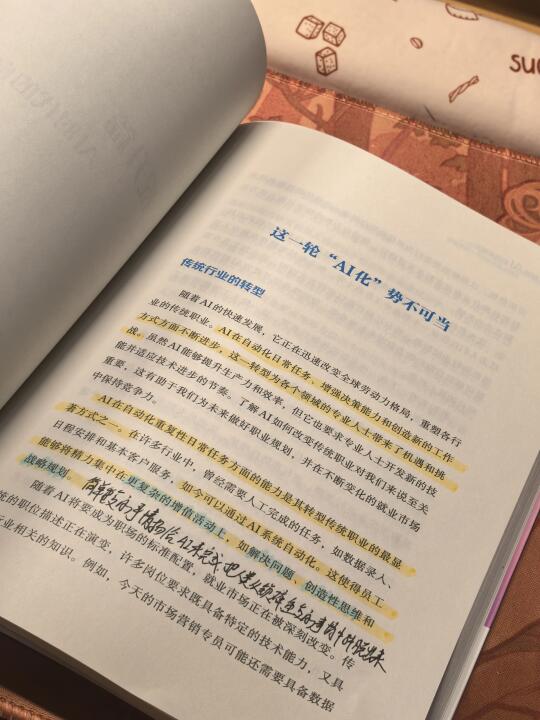 suc
这一轮“AI化”势不可当
传统行业的转型
随着AI的快速发展，它正在迅速改变全球劳动力格局，重塑各行
业的传统职业。AI在自动化日常任务、增强决策能力和创造新的工作
方式方面不断进步，这一转型为各个领域的专业人士带来了机遇和挑
战。虽然AI能够提升生产力和效率，但它也要求专业人士开发新的技
能并适应技术进步的节奏。了解AI如何改变传统职业对我们来说至关
重要，这有助于我们为未来做好职业规划，并在不断变化的就业市场
中保持竞争力。
AI在自动化重复性日常任务方面的能力是其转型传统职业的最显
著方式之一。在许多行业中，曾经需要人工完成的任务，如数据录入、
日程安排和基本客户服务，如今可以通过AI系统自动化。这使得员工
能够将精力集中在更复杂的增值活动上，如解决问题、创造性思维和
战略规划。
的事情扔给AI来完成 把
随着AI将要成为职场的标准配置，就业市场正在被深刻改变。传
统的职位描述正在演变，许多岗位要求既具备特定的技术能力，又具
业相关的知识。例如，今天的市场营销专员可能还需要具备数据